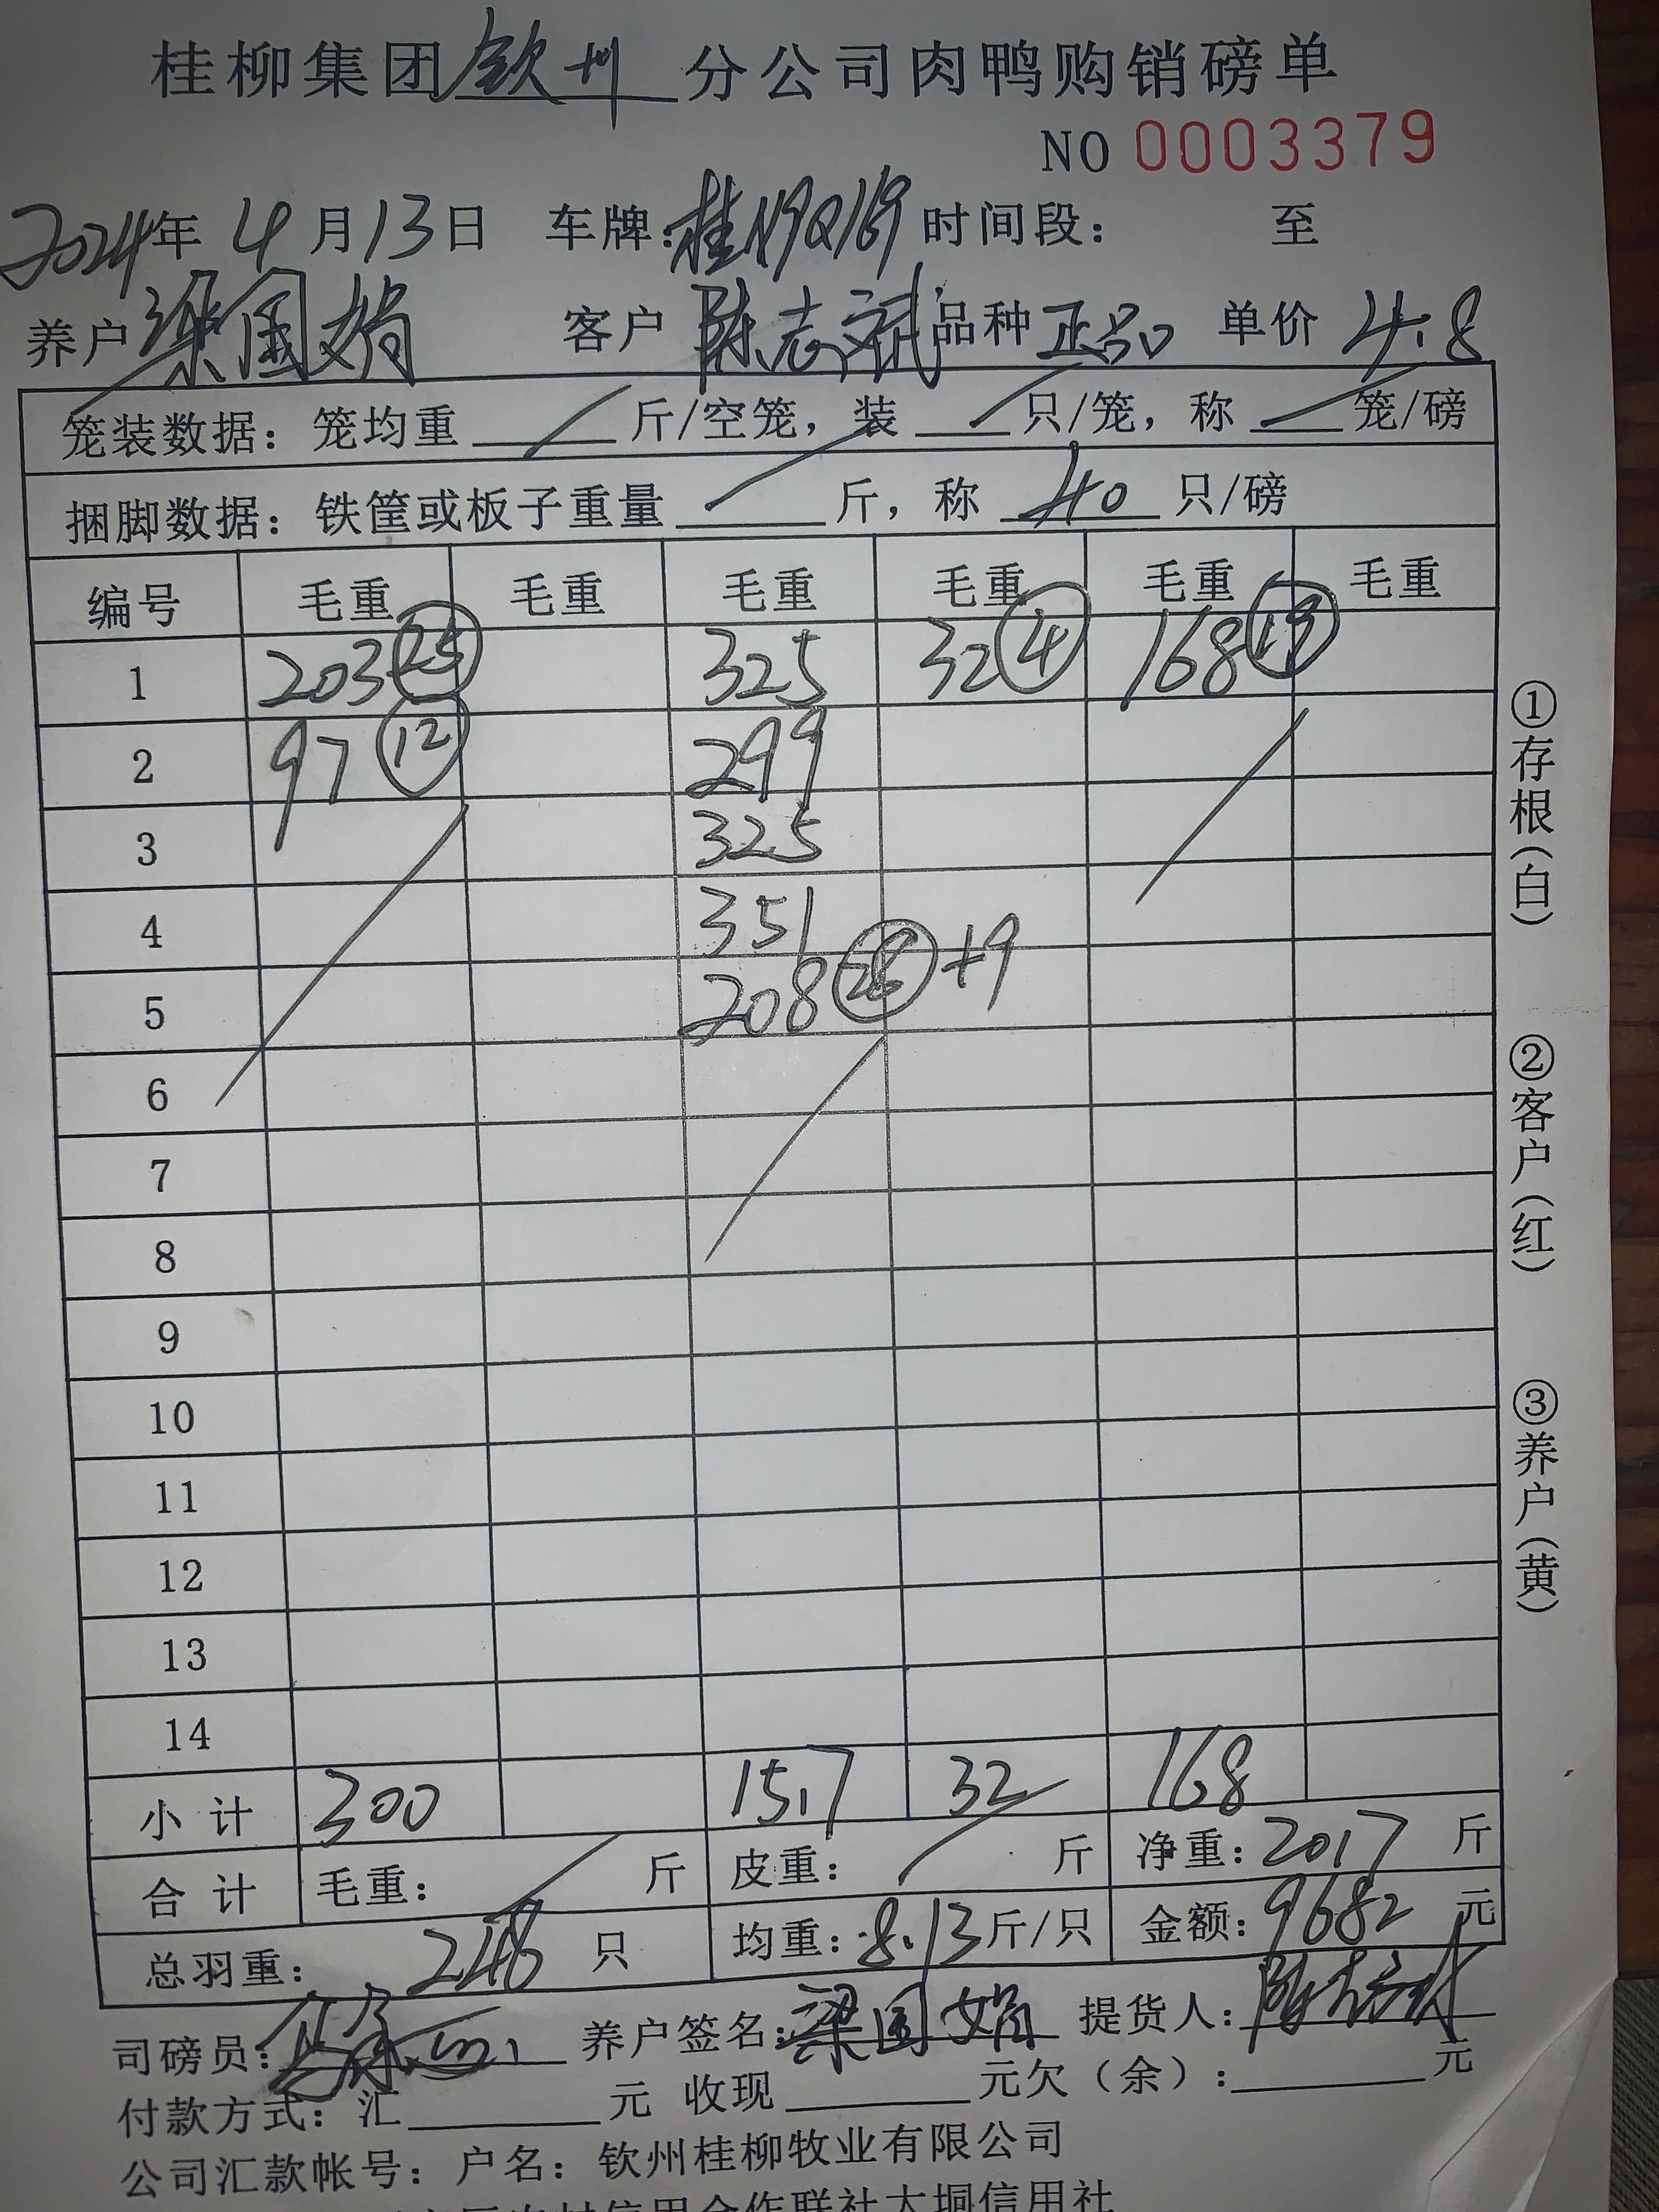 桂柳集团钦州分公司肉鸭购销磅单
NO 0003379
2024年 4月13日 车牌:桂N9Q169 时间段: 至
养户 梁国娟 客户 陈志斌 品种 正品 单价 4.8
笼装数据:笼均重 斤/空笼,装 只/笼,称 笼/磅
捆脚数据:铁筐或板子重量 斤,称 40 只/磅
编号 毛重 毛重 毛重 毛重 毛重 毛重
1 203 25 325 32 4 168 19
2 97 12 299
3 325
4 351
5 208 28 +9
6
7
8
9
10
11
12
13
14
小计 300 1517 32 168
合计 毛重: 斤 皮重: 斤 净重:2017 斤
总羽重: 248 只 均重:8.13斤/只 金额:9682 元
司磅员: 养户签名:梁国娟 提货人:陈志斌
付款方式:汇 元 收现 元欠(余): 元
公司汇款帐号:户名:钦州桂柳牧业有限公司
信用合作联社大垌信用社
①存根(白)
②客户(红)
③养户(黄)